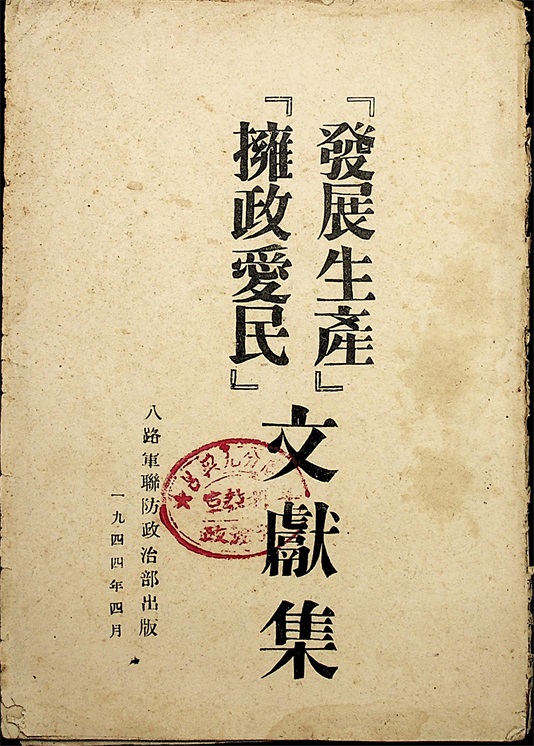 『發展生產』
『擁政愛民』
文獻集
八路軍聯防政治部出版
一九四四年四月